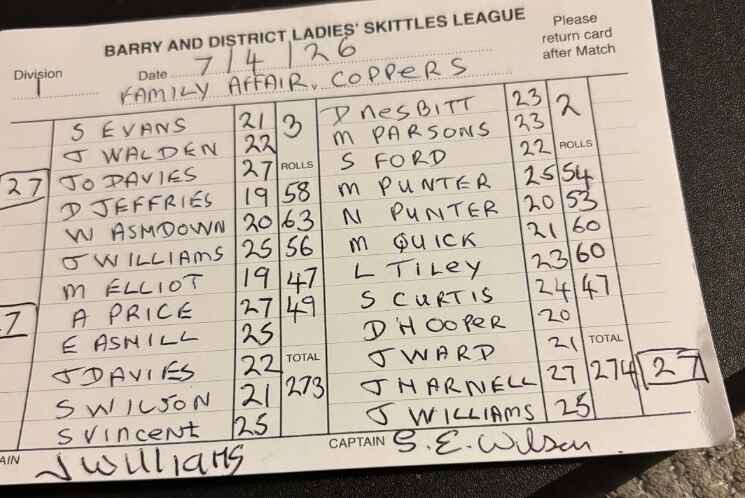 BARRY AND DISTRICT LADIES' SKITTLES LEAGUE
Please return card after Match
Division 1
Date 7/4/26
FAMILY AFFAIR v COPPERS
S EVANS 21 3
J WALDEN 22
27 JO DAVIES 27 ROLLS
D JEFFRIES 19 58
W ASMDOWN 20 63
J WILLIAMS 25 56
M ELLIOT 19 47
A PRICE 27 49
E ASHILL 25
J DAVIES 22 TOTAL
S WILSON 21 273
S VINCENT 25
D NESBITT 23 2
M PARSONS 23
S FORD 22 ROLLS
M PUNTER 25 54
N PUNTER 20 53
M QUICK 21 60
L TILEY 23 60
S CURTIS 24 47
D HOOPER 20
J WARD 21 TOTAL
J HARNELL 27 274 27
J WILLIAMS 25
AIN J Williams
CAPTAIN S.E. Wilson